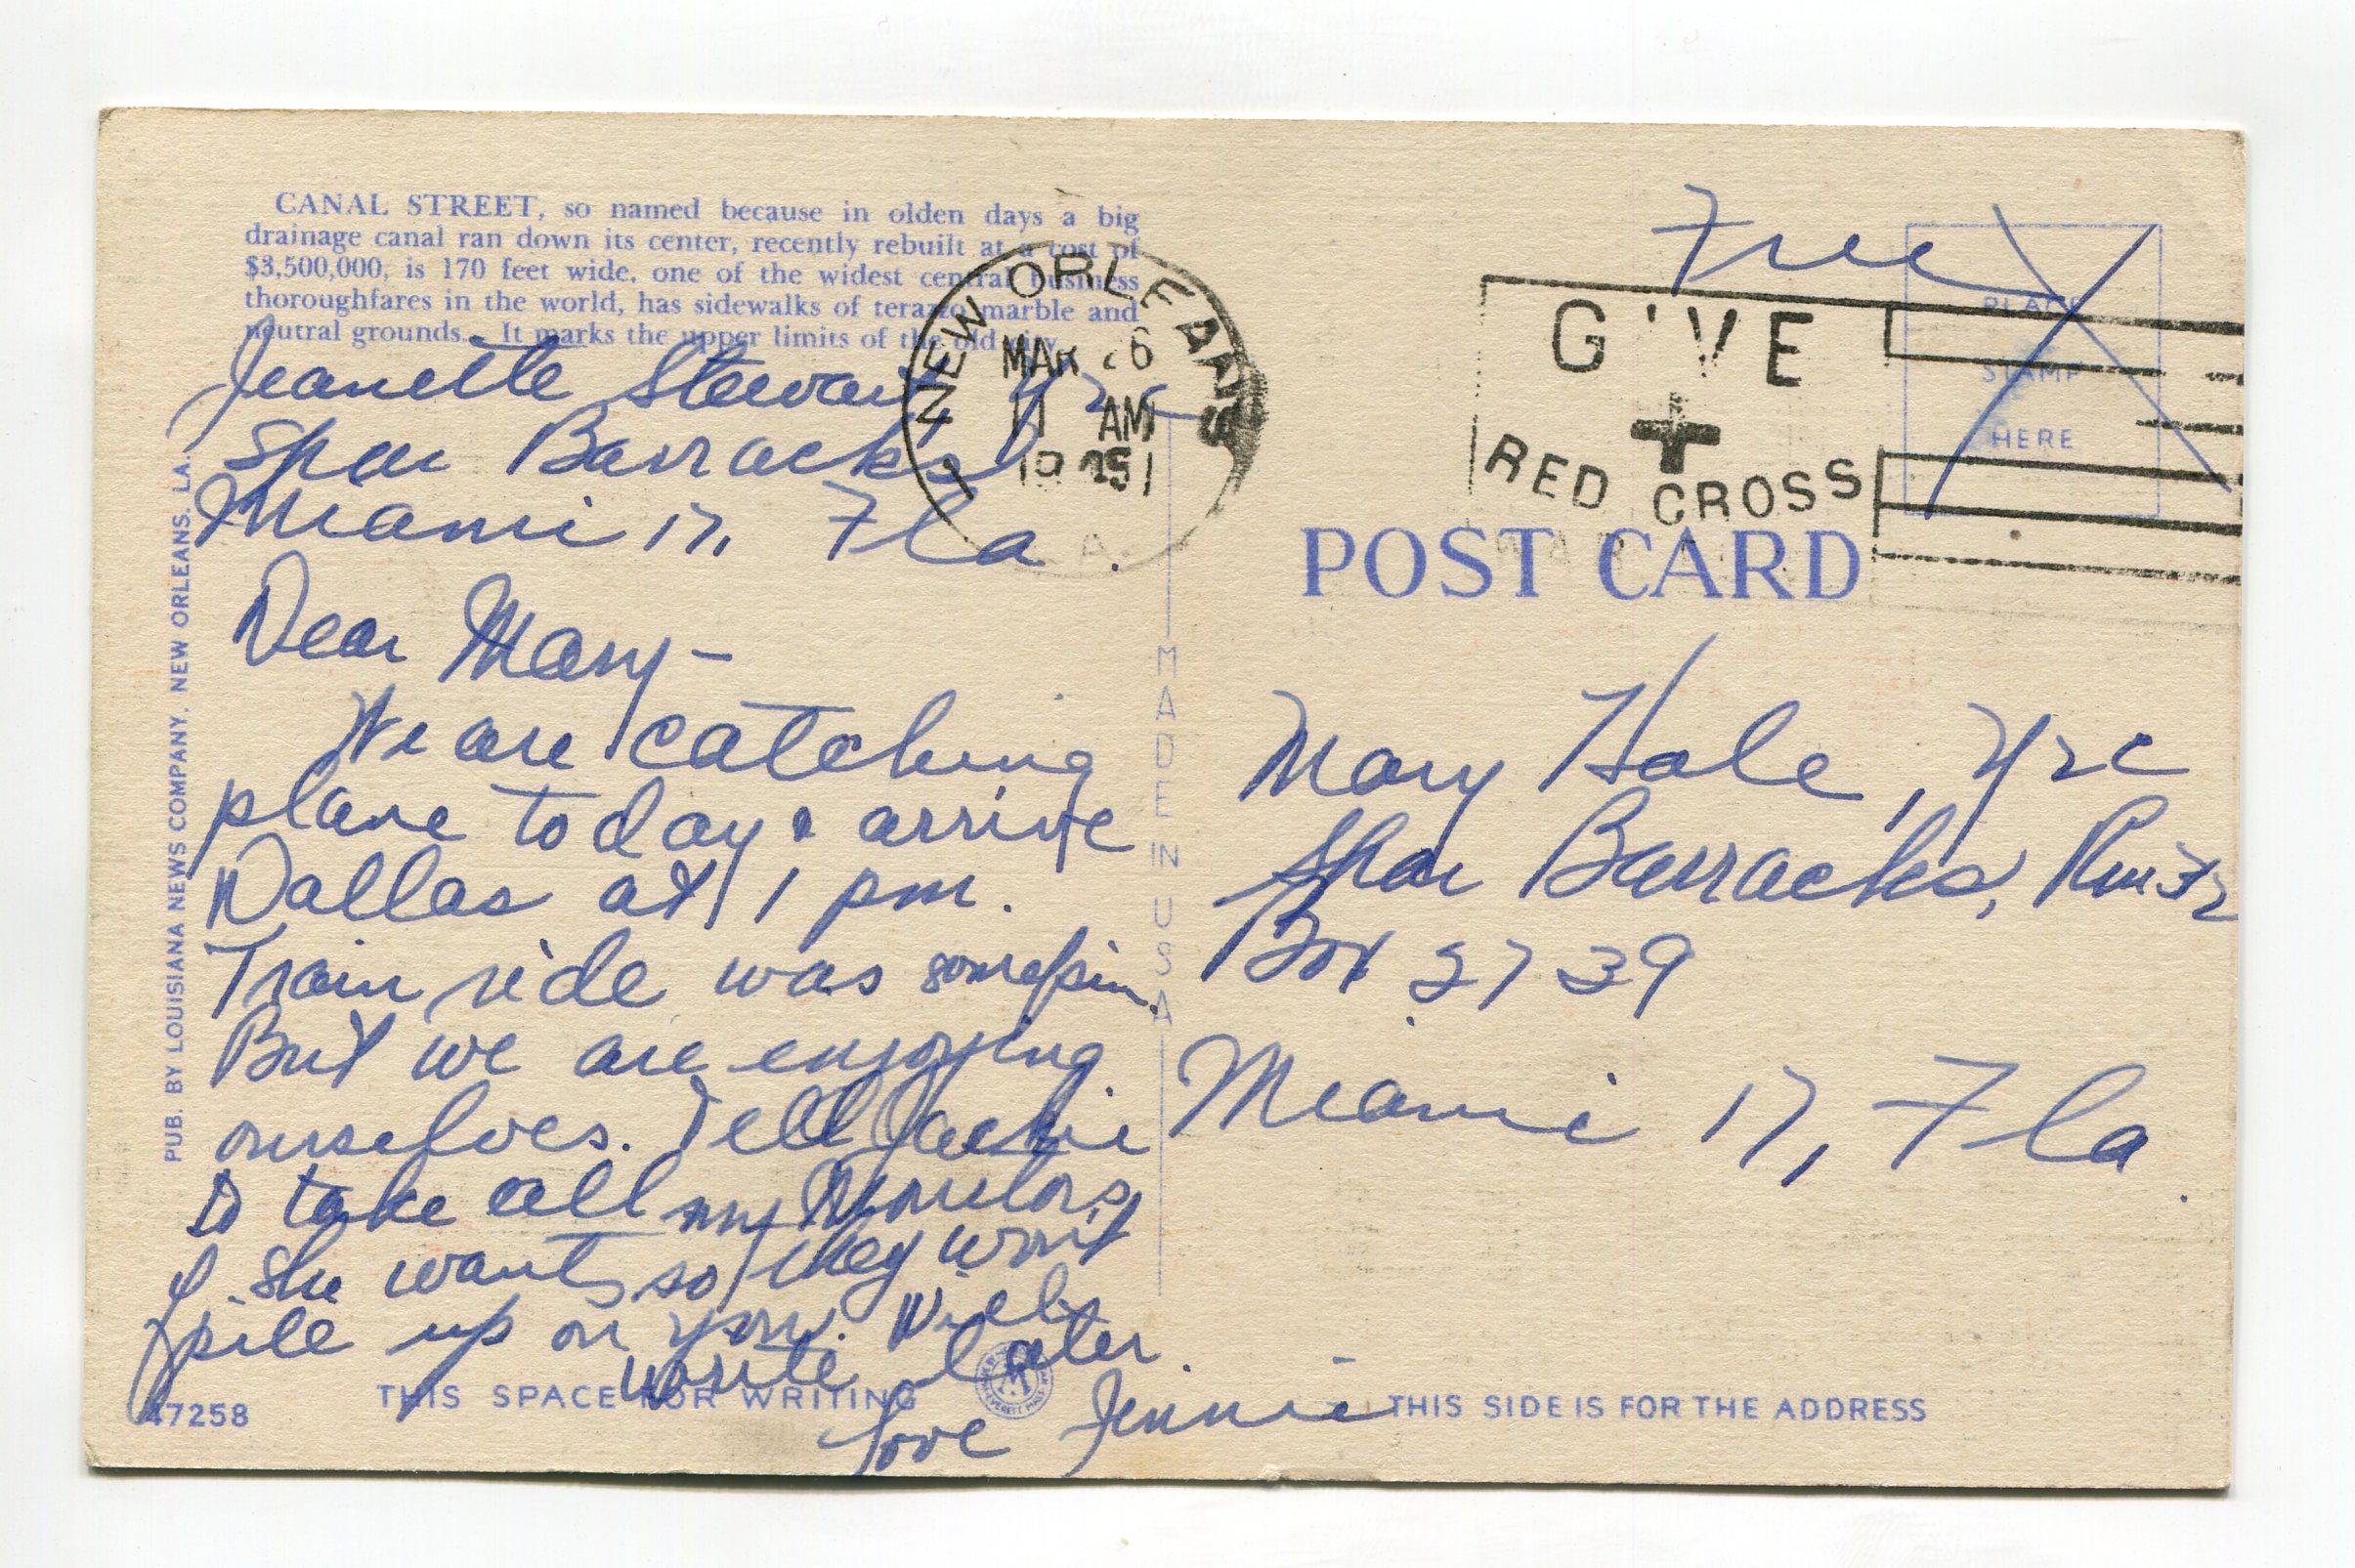 CANAL STREET, so named because in olden days a big
drainage canal ran down its center, recently rebuilt at a cost of
$3,500,000, is 170 feet wide, one of the widest central business
thoroughfares in the world, has sidewalks of terazzo marble and
neutral grounds. It marks the upper limits of the old city.
Jeanette Stewart, Y2c
Spar Barracks
Miami 17, Fla.
Dear Mary-
We are catching
plane today & arrive
Dallas at 1 pm.
Train ride was somepin.
But we are enjoying
ourselves. Tell Jackie
to take all my
if she wants so they won't
pile up on you. Will
write later.
Love Jennie
PUB. BY LOUISIANA NEWS COMPANY, NEW ORLEANS, LA.
47258
THIS SPACE FOR WRITING
MADE IN U S A
NEW ORLEANS
MAR 26
11 AM
1
Free
GIVE
RED CROSS
PLACE
STAMP
HERE
POST CARD
Mary Hale, Y2c
Spar Barracks, Rm 32
Box 3739
Miami 17, Fla.
THIS SIDE IS FOR THE ADDRESS